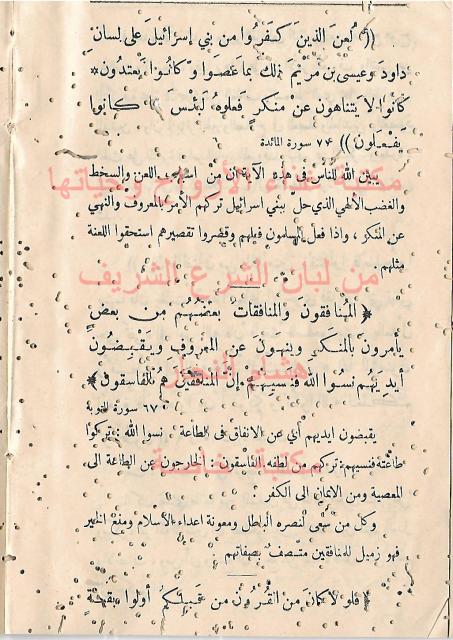 (( لُعنَ الذينَ كَفَرُوا من بَني إسرائيلَ على لِسانِ
داودَ وعيسى بنِ مَرْيَمَ ذلكَ بما عَصَوا وَكانُوا يعتدُونَ *
كانُوا لا يَتناهونَ عنْ منكرٍ فَعلوهُ لَبئسَ كانوا
يَفعلون )) ٧٤ سورة المائدة
يبين الله للناس في هذه الآية ان من اللعن والسخط
والغضب الالهي الذي حل ببني اسرائيل تركهم الأمر بالمعروف والنهي
عن المنكر ، واذا فعل المسلمون فعلهم وقصروا تقصيرهم استحقوا اللعنة
مثلهم .
﴿ المُنافقونَ والمنافقاتُ بعضُهُم من بعضٍ
يأمرونَ بالمنكَرِ وينهَونَ عن المعروفِ ويَقبِضُونَ
أيدِيَهُم نَسُوا الله فنَسِيَهُم إنَّ المنافقينَ هُم الفاسقونَ ﴾
٦٧ سورة التوبة
يقبضون ايديهم أي عن الانفاق في الطاعة نسوا الله : تركوا
طاعته فنسيهم : تركهم من لطفه الفاسقون : الخارجون عن الطاعة الى
المعصية ومن الايمان الى الكفر :
وكل من سعى لنصره الباطل ومعونة اعداء الأسلام ومنع الخير
فهو زميل للمنافقين متصف بصفاتهم
﴿ فلو لا كانَ من القُرُونِ من قَبلِكُم أُولُوا بقيَّةٍ
مكتبة غذاء الأرواح وحياتها
من لبان الشرع الشريف
هشام النجار
مكتبة خاصة